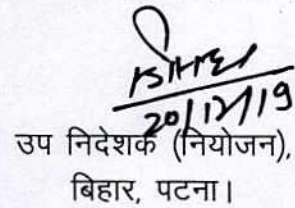 20/12/19
उप निदेशक (नियोजन),
बिहार, पटना।